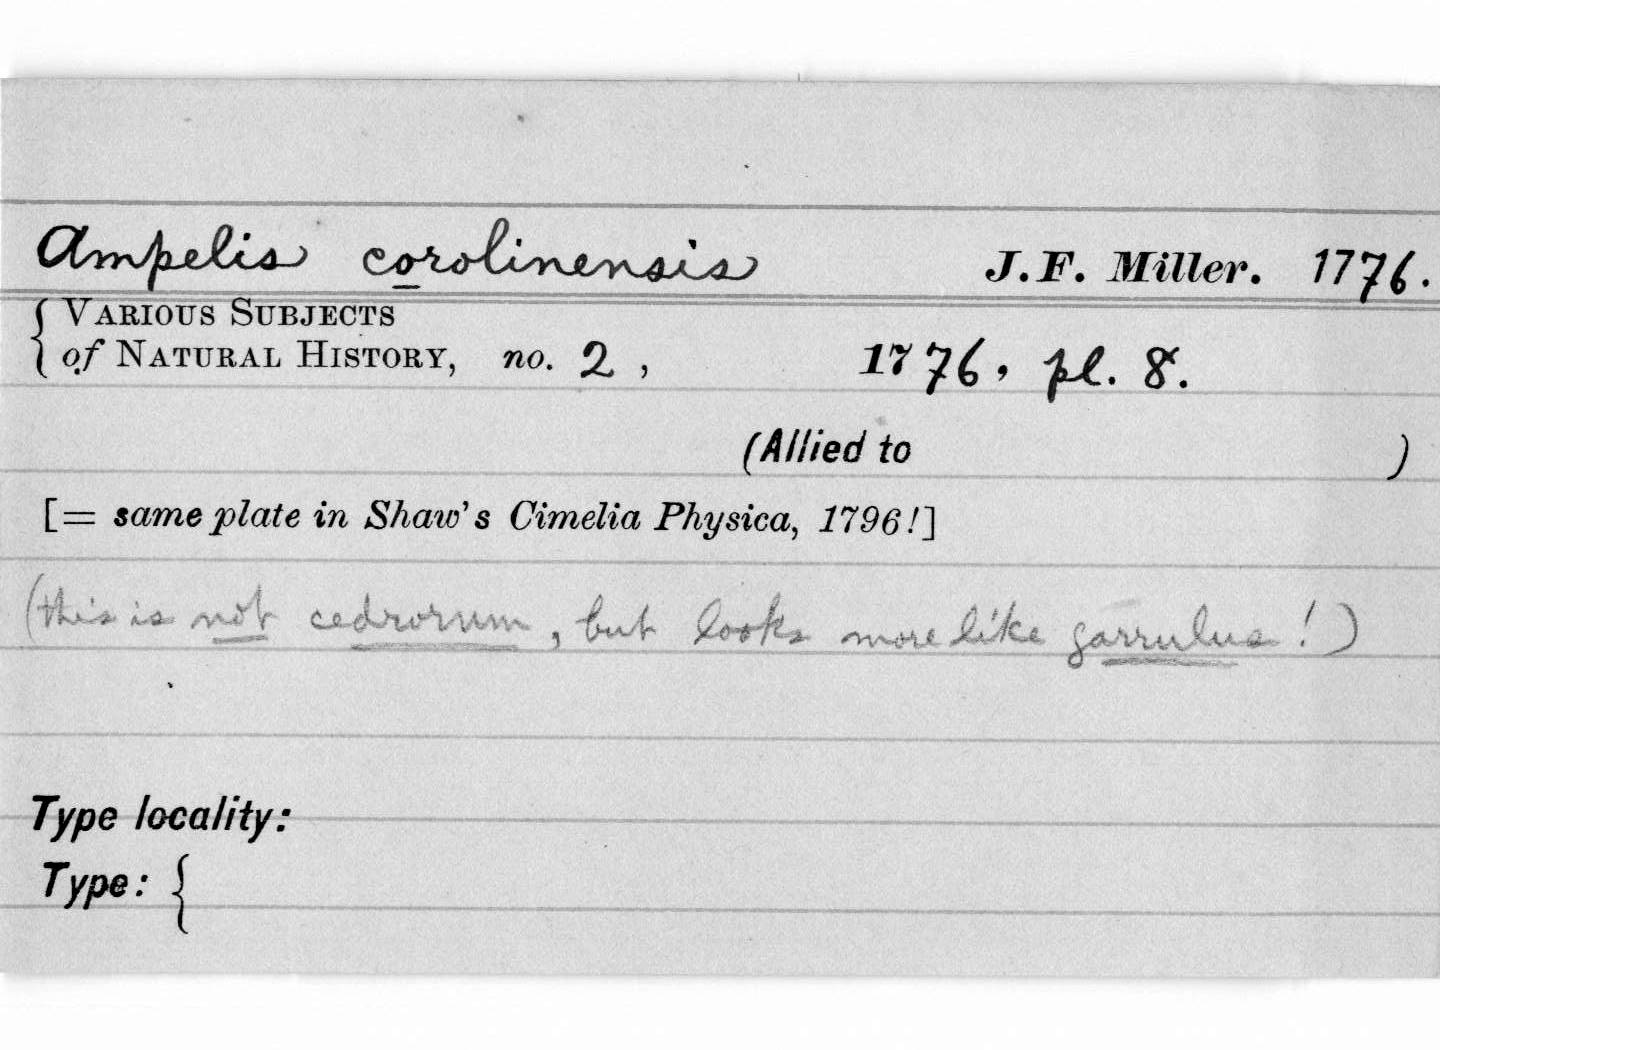 Ampelis corolinensis J.F. Miller. 1776.
{ VARIOUS SUBJECTS
of NATURAL HISTORY, no. 2, 1776, pl. 8.
(Allied to )
[= same plate in Shaw's Cimelia Physica, 1796!]
(this is not cedrorum, but looks more like garrulus!)
Type locality:
Type: {